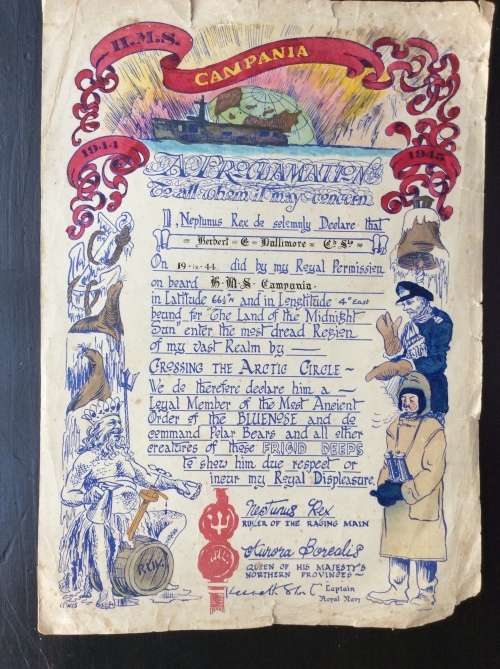 H.M.S.
CAMPANIA
1944
1945
A PROCLAMATION
To all whom it may concern
I, Neptunus Rex do solemnly Declare that
Herbert E Dallimore
On 19·ix·44 did by my Royal Permission
on board H.M.S. Campania
in Latitude 66½°N and in Longtitude 4° East
bound for "The Land of the Midnight
Sun" enter the most dread Region
of my vast Realm by —
CROSSING THE ARCTIC CIRCLE ~
We do therefore declare him a ~
Legal Member of the Most Ancient
Order of the BLUENOSE and do
command Polar Bears and all other
creatures of these FRIGID DEEPS
to show him due respect or
incur my Royal Displeasure.
Neptunus Rex
RULER OF THE RAGING MAIN
Aurora Borealis
QUEEN OF HIS MAJESTY'S
NORTHERN PROVINCES ~
Captain
Royal Navy
RUM